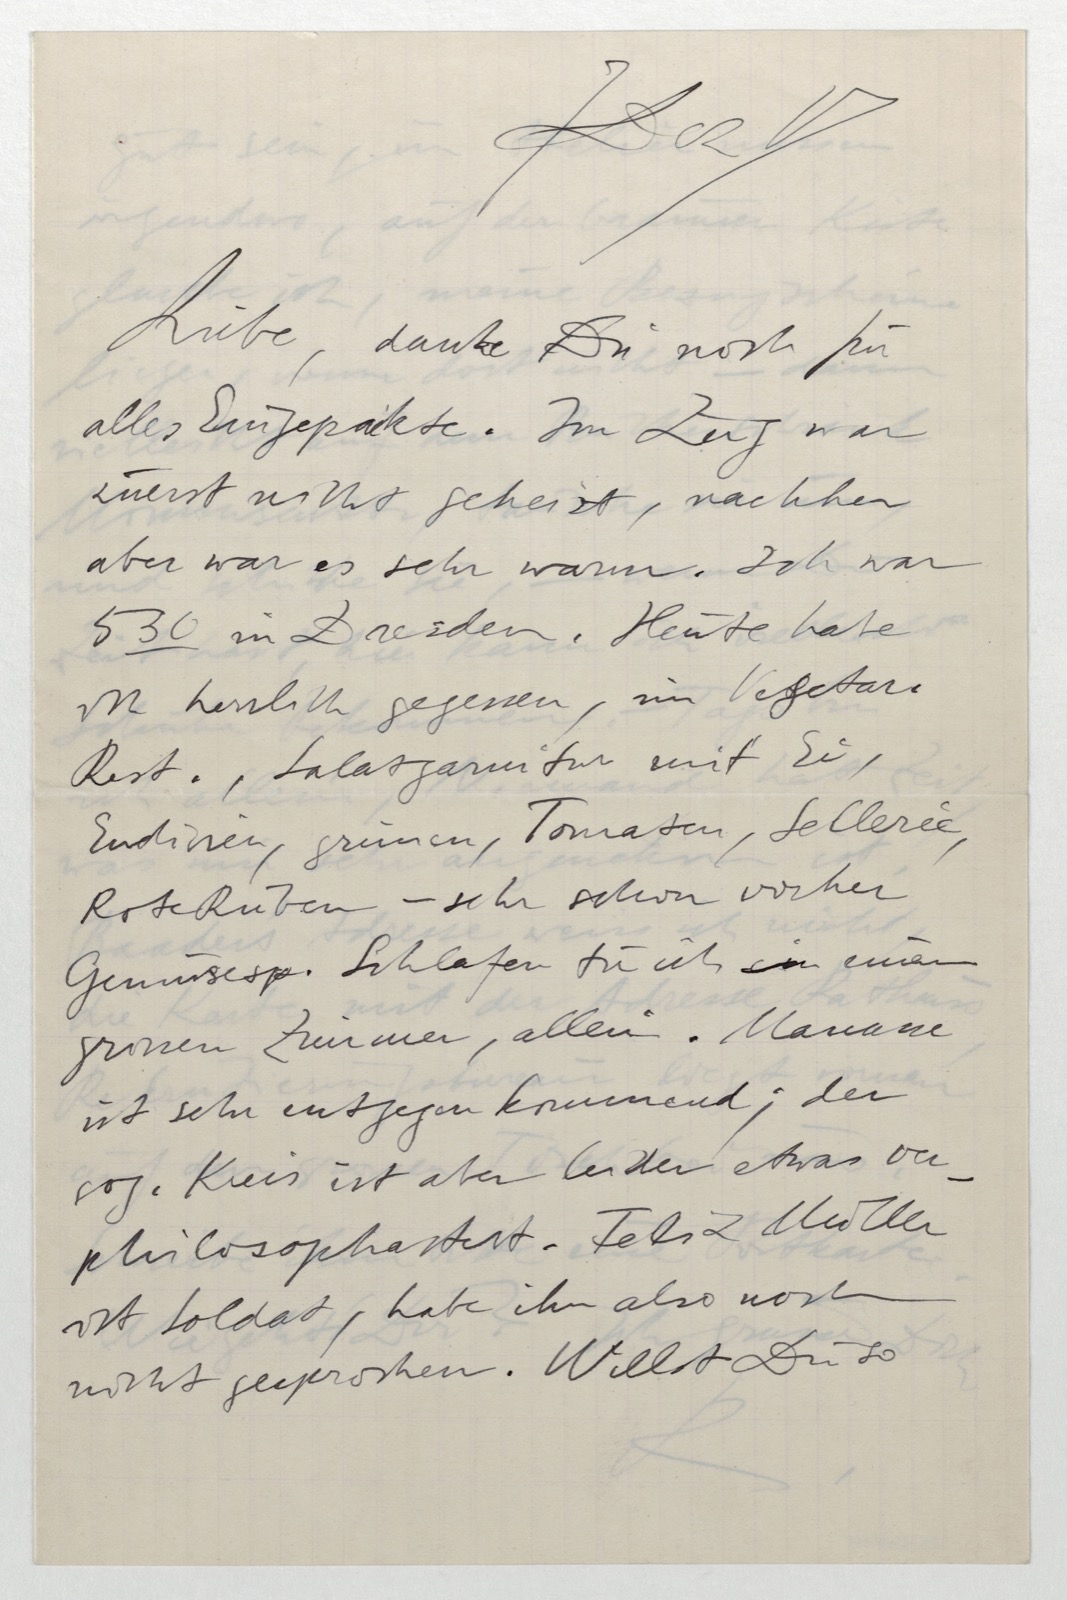 Liebe, danke Dir noch für
alles Eingepackte. Im Zug war
zuerst nicht geheizt, nachher
aber war es sehr warm. Ich war
5 30 in Dresden. Heute habe
ich herrlich gegessen, im Vegetar.
Rest., Salatgarnitur mit Ei,
Endivien, grünen, Tomaten, Sellerie,
Rote Rüben – sehr schön vorher
Gemüsesp. Schlafen tu ich in einem
grossen Zimmer, allein. Marianne
ist sehr entgegenkommend; der
sog. Kreis ist aber leider etwas ver-
philosophastert. Felix Müller
ist Soldat, habe ihn also noch
nicht gesprochen. Willst Du so